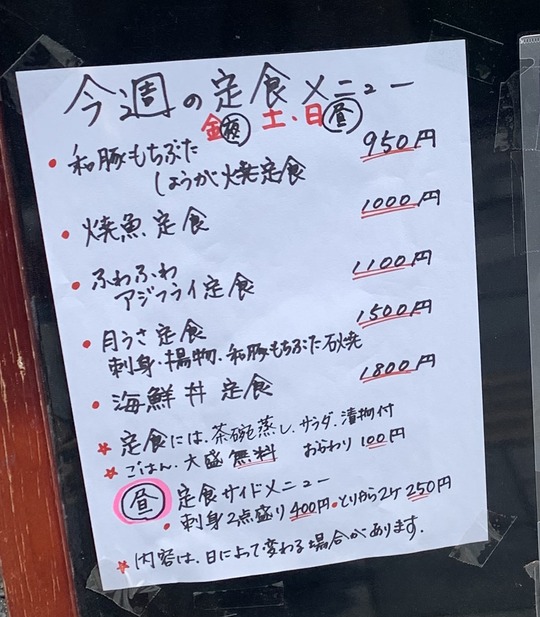 今週の定食メニュー
金夜 土・日昼
・和豚もちぶた
しょうが焼定食 950円
・焼魚定食 1000円
・ふわふわ
アジフライ定食 1100円
・月うさ定食 1500円
刺身・揚物・和豚もちぶた石焼
・海鮮丼定食 1800円
☆定食には、茶碗蒸し、サラダ、漬物付
☆ごはん、大盛無料 おかわり100円
昼 定食サイドメニュー
・刺身2点盛り400円・とりから2ケ250円
☆内容は、日によって変わる場合があります。